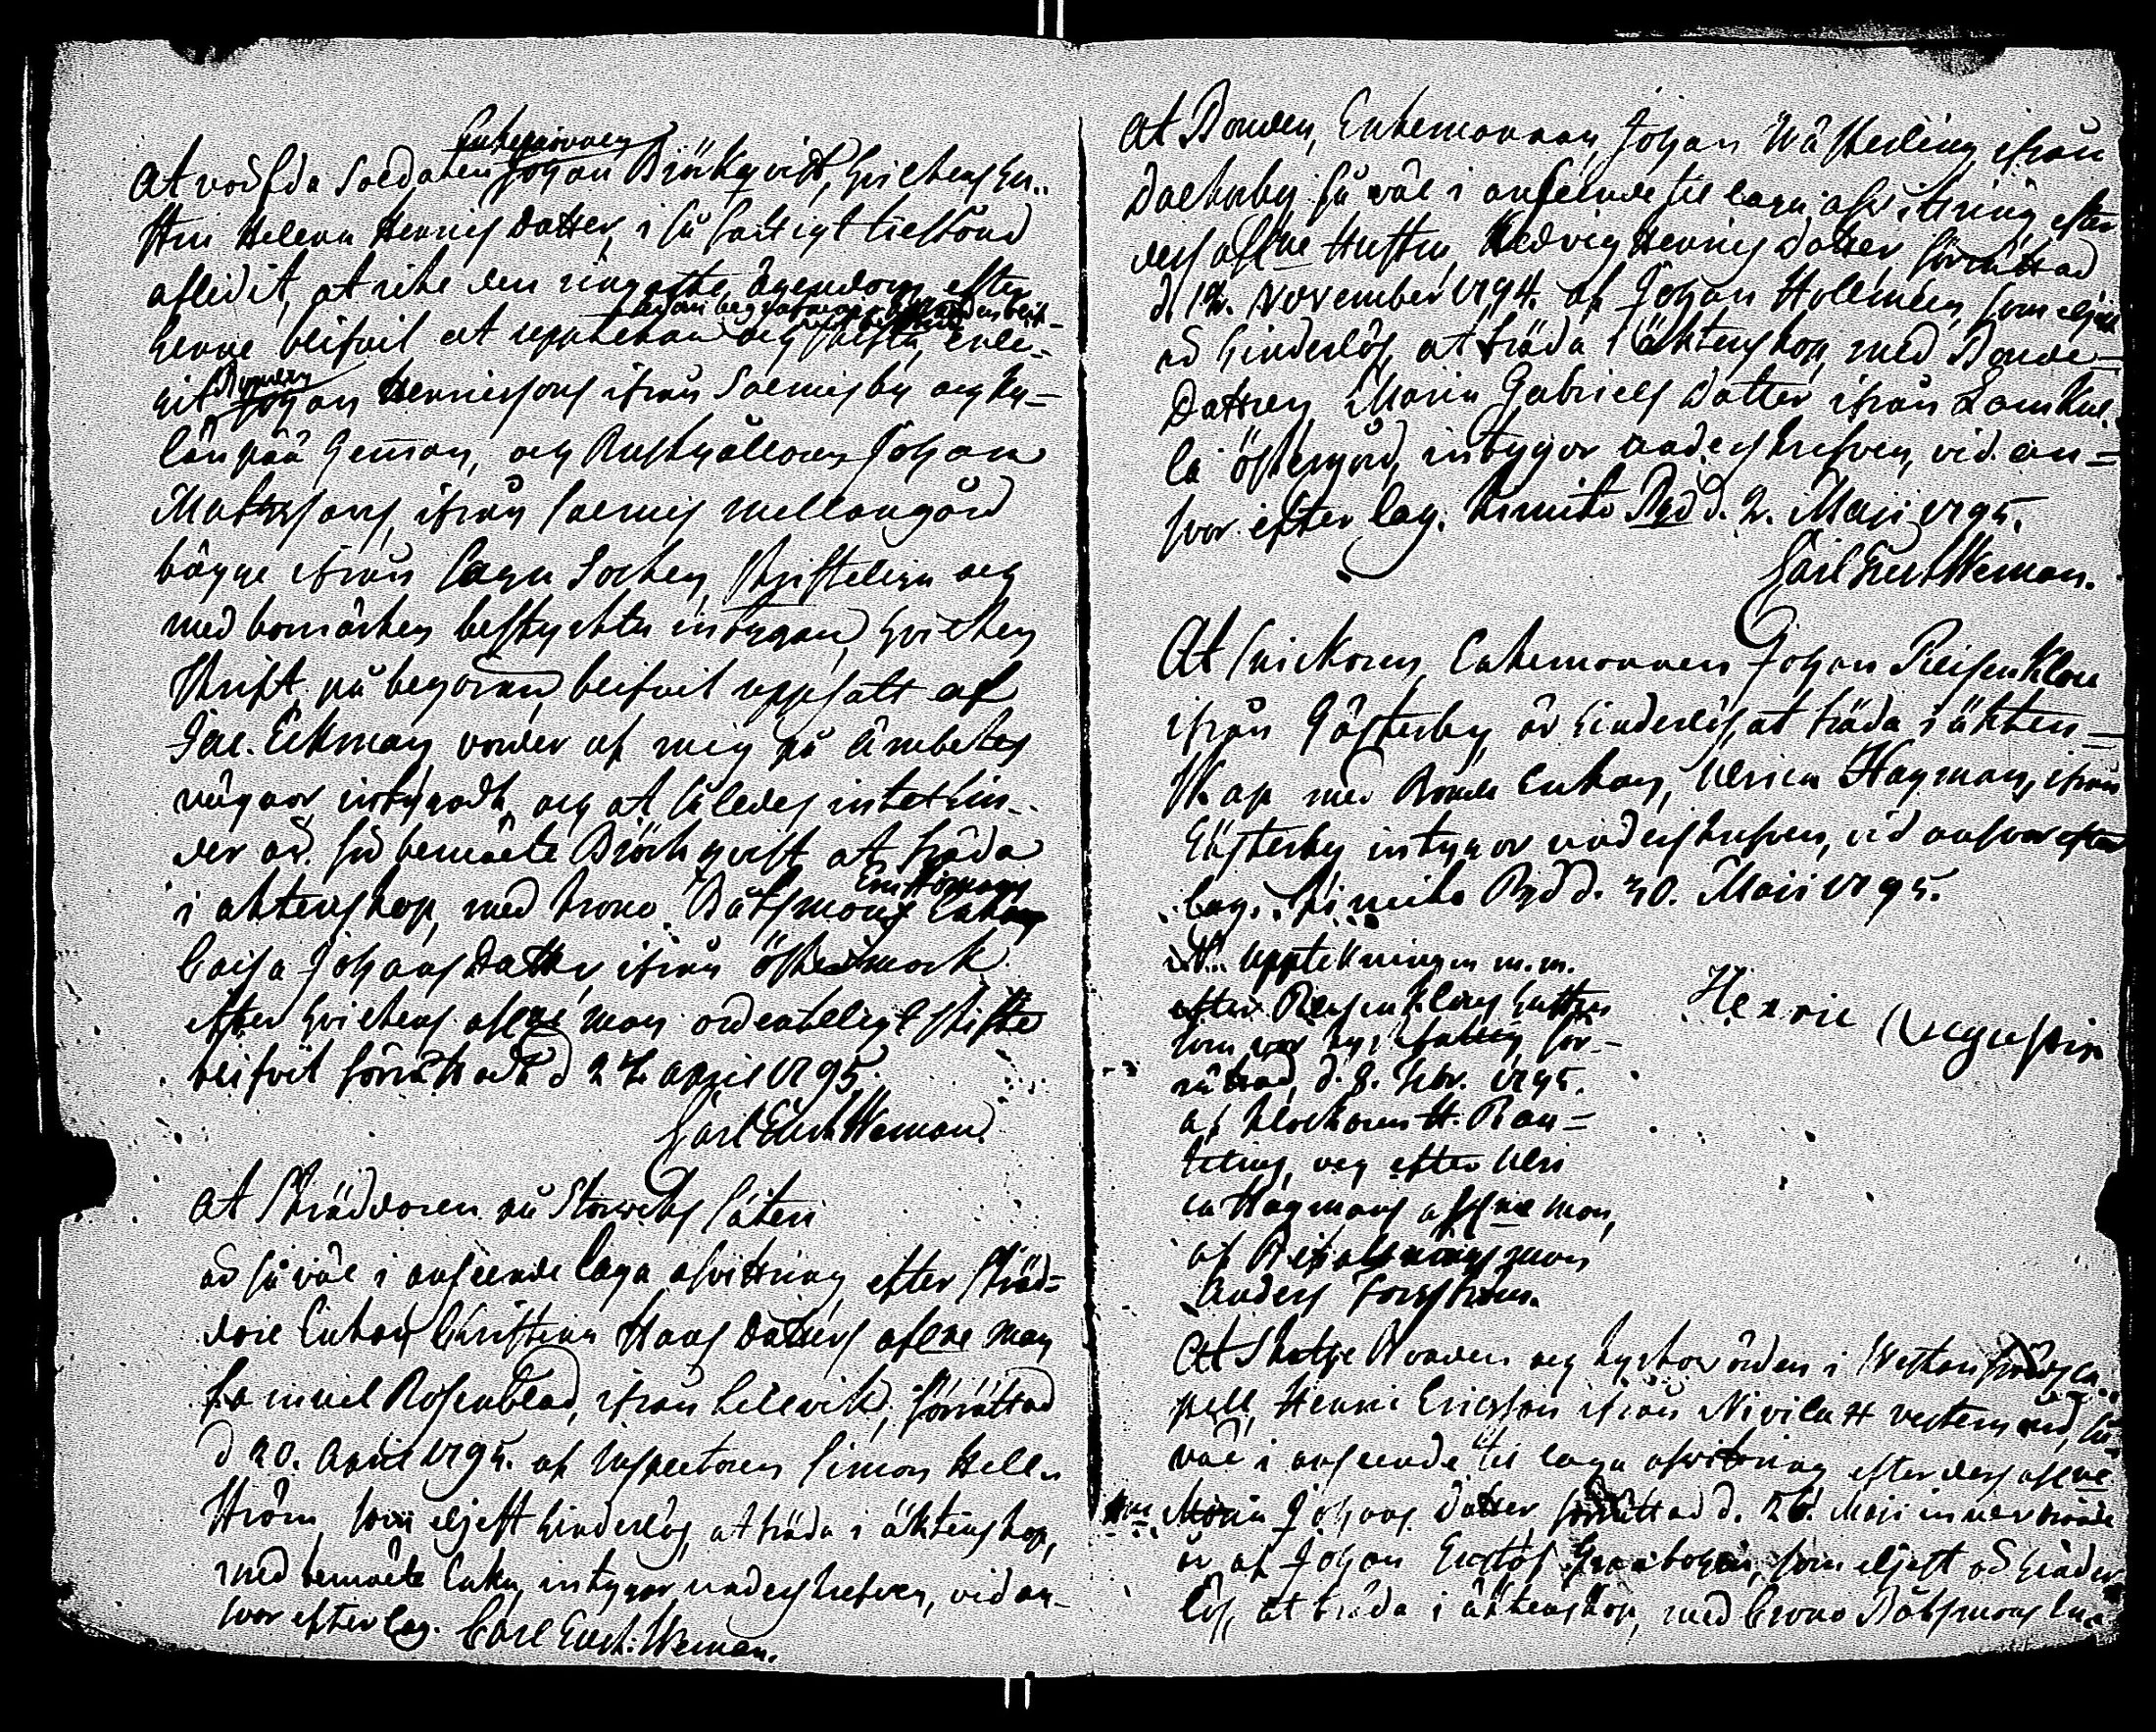 Enkemannen
At vördsda Soldaten Johan Björkqvist, hvilkens hu-
stru Helena Henrics Dotter, i så fattigt tilstånd
aflidit, at icke den ringaste ägendom efter
henne blifvit at uptekna och skifta, enli-
git Bonden Johan Henricsons ifrån Salmis by och Ky-
länpää hemman, och Rusthållaren Johan
Mattssons, ifrån Salmis mellangård
bägge ifrån Sagu Sochen, skriftelign och
med bomärken bestyrkta intygan, hvilken
skrift på begäran blifvit uppsatt af
Jac. Eckman, varder af mig på ämbetes
vägnar intygadt, och at således intet hin-
der är för bemälte Björkqvist at träda
i äktenskap, med krono Båtsmans Enkan
Caisa Johans Dotter, ifrån Östermark
efter hvilkens aflne man ordenteligt skifte
blifvit förrättadt d 24 april 1795.
Carl Erich Weman
At Skräddaren på Storwiks Säteri
är så väl i anseende laga afvittring efter Skräd-
dare Enkan Christina Hans Dotters aflne Man
Samuel Rosenblad, ifrån Lillvik, förrättad
d 20. April 1795. af Inspectoren Simon Hell-
ström, som eljest hinderlös, at träda i äktenskap,
med bemälte Enka, intygar underskrefven, vid an-
svar efter lag. Carl Erich: Weman.
At Bonden, Enkemannen Johan Wästerling ifrån
Dalkarby så väl i anseende til laga afvittring efter
dess aflne Hustru Hedvig Henrics Dotter förrättad
d. 12. November 1794. af Johan Holmén, som eljest
är hinderlös, at träda i äktenskap, med Bonde-
Dottren Maria Gabriels Dotter ifrån Lamkul-
la östergård, intygar underskrefven, vid an-
svar efter lag. Kimito Pgd d. 2. Maji 1795.
Carl Erich Weman.
At Snickaren, Enkemannen Johan Reisenklou
ifrån Gästerby, är hinderlös, at träda i äkten-
skap med Bonde Enkan, Ulrica Hagman, ifrån
Gästerby intygar underskrefven, vid ansvar efter
lag. Kimito Pgd d. 30. Maji 1795.
Uppteckningen m.m.
efter Reisenklous hustru
som var för-
rättad, d. 8. Febr. 1795.
af klockaren H. Ran-
teling, och efter Ulri
ca Hagmans aflne man,
af
Anders Forsström.
Henric Augustin
At Skatte Bonden och kyrkovärden i Westanfjärds Ca-
pell, Henric Ericsson ifrån Nivilax vestergård, så
väl i anseende til laga afvittring efter dess aflne
Maria Johans Dotter förrättad d. 26. Maji innevarande
år af Johan Gustaf som eljest är hinder-
lös, at träda i äktenskap, med Crono Båtsmans En-